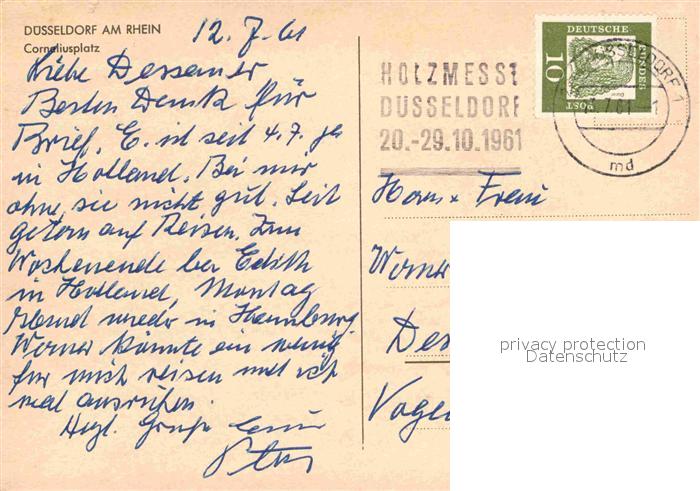 DÜSSELDORF AM RHEIN
Corneliusplatz
12.7.61
Liebe Dessauer
Besten Dank für
Brief. E. ist seit 4.7.
in Holland. Bei mir
ohne sie nicht gut. Seit
gestern auf Reisen. Zum
Wochenende bei Edith
in Holland, Montag
Abend wieder in Hamburg.
Werner könnte ein wenig
für mich reisen und ich
mal ausruhen.
Herzl. Grüße Euer
Peter
HOLZMESSE
DÜSSELDORF
20.-29.10.1961
DEUTSCHE
BUNDES
POST
10
DÜSSELDORF 1
md
Herrn + Frau
Werner
privacy protection
Datenschutz